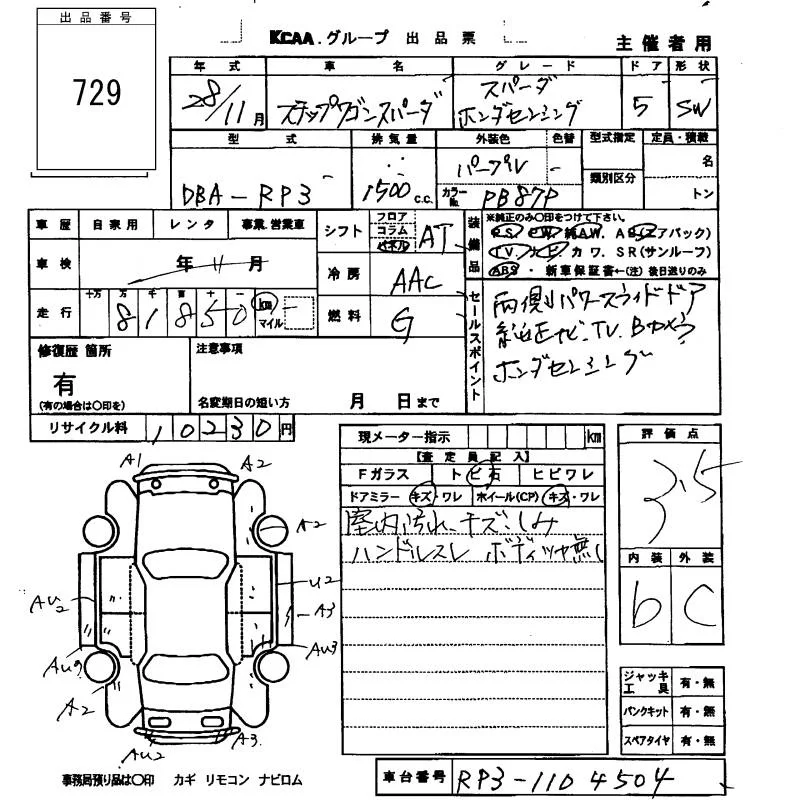 出品番号
729
KCAA.グループ 出品票
主催者用
年式 車名 グレード ドア 形状
28/11月 ステップワゴンスパーダ スパーダ ホンダセンシング 5 SW
型式 排気量 外装色 色替 型式指定 定員・積載
DBA-RP3 1500 c.c. パープル - 名
カラーNo. PB87P 類別区分 トン
車歴 自家用 レンタ 事業.営業車
シフト フロア コラム パネル AT
装備品 ※純正のみ〇印をつけて下さい。
PS PW 純AW. AB(エアバック)
TV. ナビ カワ. SR(サンルーフ)
ABS・新車保証書←(注)後日送りのみ
車検 年 11月
冷房 AAC
走行 十万 万 千 百 十 一
81850 km マイル
燃料 G
セールスポイント
両側パワースライドドア
純正ナビ.TV.Bカメラ
ホンダセンシング
修復歴 箇所
有
(有の場合は〇印を)
注意事項
名変期日の短い方 月 日まで
リサイクル料 10230円
現メーター指示 km
【査定員記入】
Fガラス トビ石 ヒビワレ
ドアミラー キズ・ワレ ホイール(CP) キズ・ワレ
室内汚れ、キズ、しみ
ハンドルスレ ボディツヤ無し
評価点
3.5
内装 外装
b C
A1
A2
A2
U2
AU2
A3
AU3
AU9
A2
AU2
A3
ジャッキ工具 有・無
パンクキット 有・無
スペアタイヤ 有・無
事務局預り品は〇印 カギ リモコン ナビロム
車台番号 RP3-1104504